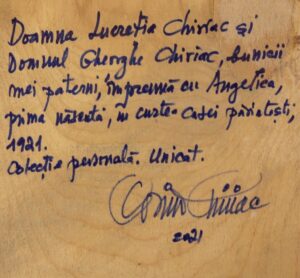 Doamna Lucreția Chiriac și
Domnul Gheorghe Chiriac, bunicii
mei paterni, împreună cu Angelica,
prima născută, în curtea casei părintești,
1921.
Colecție personală. Unicat.
Chiriac
2021